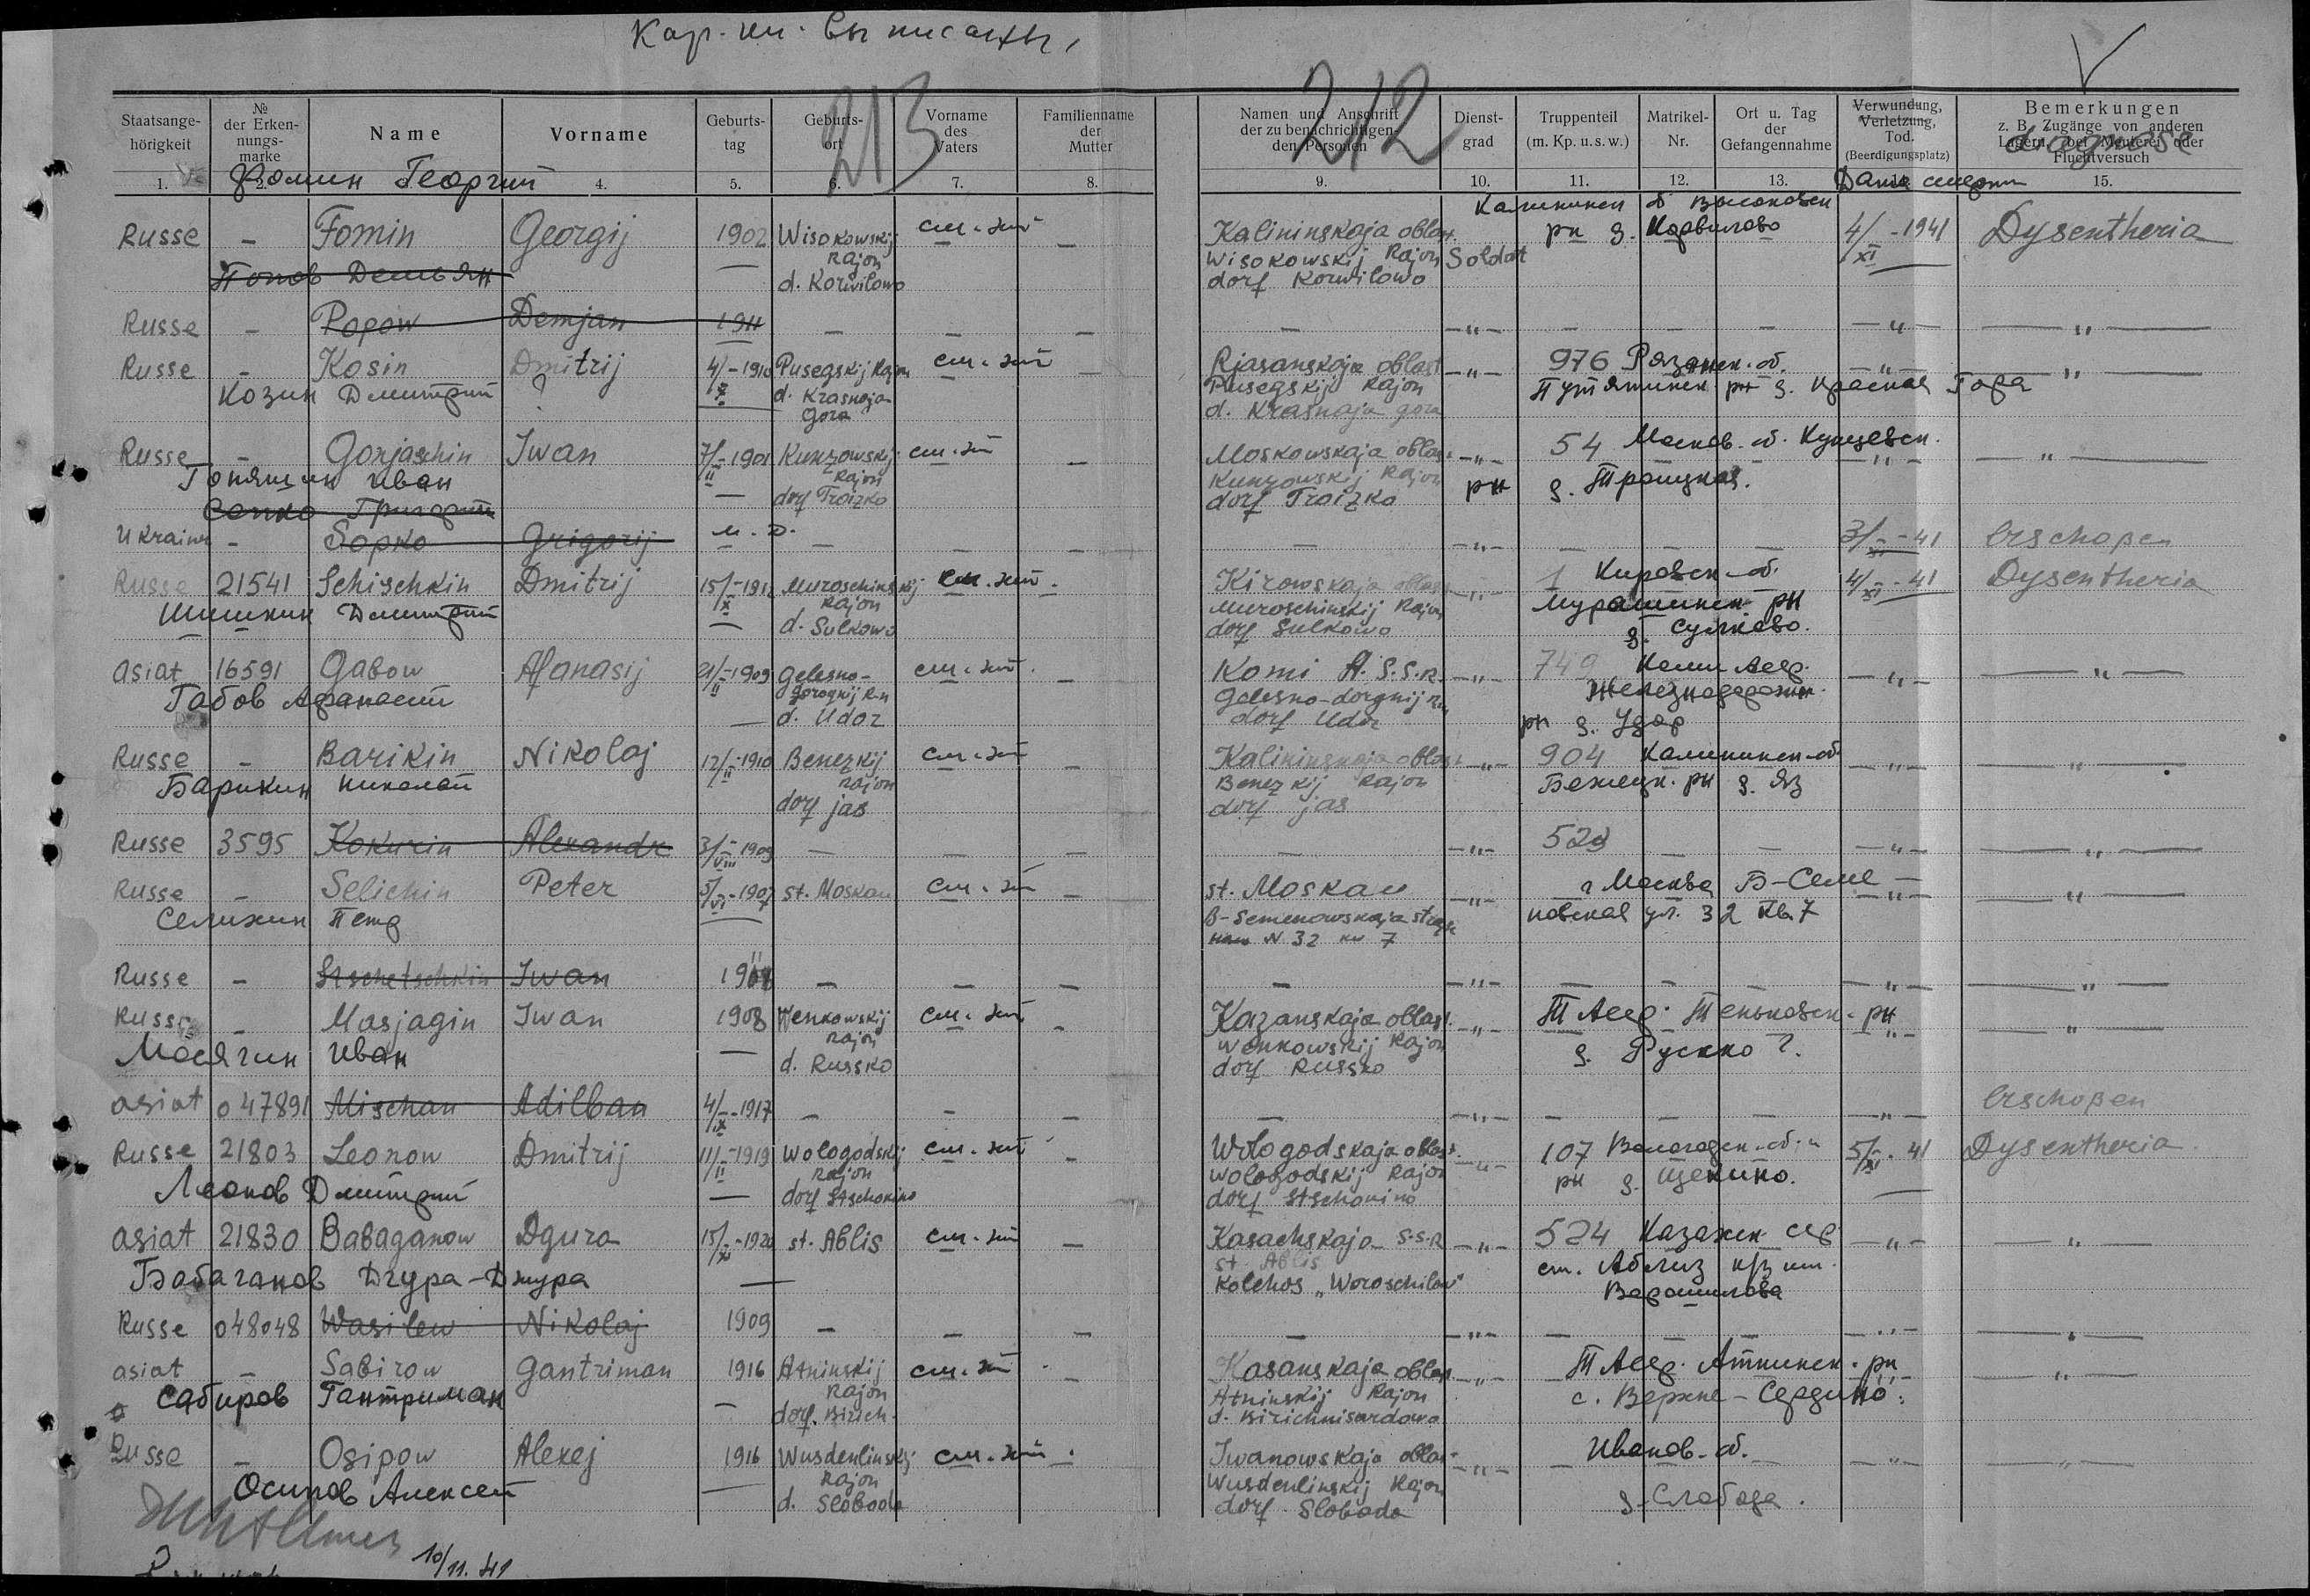 Кар. ки. Выписаны,
213 212
Staatsange-hörigkeit № der Erken-nungs-marke Name Vorname Geburts-tag Geburts-ort Vorname des Vaters Familienname der Mutter Namen und Anschrift der zu benachrichtigen-den Personen Dienst-grad Truppenteil (m. Kp. u. s. w.) Matrikel-Nr. Ort u. Tag der Gefangennahme Verwundung, Verletzung, Tod. (Beerdigungsplatz) Bemerkungen z. B. Zugänge von anderen Lagern, bei Meuterei oder Fluchtversuch
diagnose
1. 2. 4. 5. 6. 7. 8. 9. 10. 11. 12. 13. 15.
Фомин Георгий Дата смерти
Калининск об Высоковск
Russe - Fomin Georgij 1902 Wisokowskij см. жит - Kalininskaja oblast. рн д. Корвилово 4/XI - 1941 Dysentheria
Rajon Wisokowskij Rajon Soldat
d. Korwilowo dorf Korwilowo
Попов Демьян
Russe - Popow Demjan 1911 - - - - -"- - - - -"- -"-
Russe - Kosin Dmitrij 4/X - 1910 Pusegskij Rajon см. жит - Rjasanskaja oblast -"- 976 Рязанск. об. -"- -"-
Козин Дмитрий ? d. Krasnaja Gora Pusegskij Rajon Путятинск рн д. Красная Гора
d. Krasnaja gora
Russe - Gorjaschin Iwan 7/II - 1901 Kunzowskij см. жит - Moskowskaja oblast -"- 54 Москов. об. Кунцевск. -"- -"-
Rajon Kunzowskij Rajon рн д. Троицкая.
Горящин Иван dorf Troizko dorf Troizko
Сопко Григорий
Ukrainer - Sopko Grigorij u. D. - - - - -"- - - - 3/XI - 41 erschoßen
Russe 21541 Schischkin Dmitrij 15/X - 1912 Muroschinskij см. жит - Kirowskaja oblast -"- 1 Кировск. об. 4/XI - 41 Dysentheria
Шишкин Дмитрий Rajon Muroschinskij Rajon Мурашинск рн
d. Sulkowo dorf Sulkowo д. Сулково.
asiat 16591 Gabow Afanasij 21/II - 1909 Gelesno- см. жит - Komi A.S.S.R. -"- 749 Коми Асср. -"- -"-
Габов Афанасий dorognij R-n Gelesno-dorgnij Rn Железнодорожн.
d. Udor dorf Udor рн д. Удор
Russe - Barikin Nikolaj 12/II - 1910 Benezkij см. жит - Kalininskaja oblast -"- 904 Калининск. об -"- -"-
Барикин Николай Rajon Benezkij Rajon Бежецк. рн д. Яз
dorf jas dorf jas
Russe 3595 Kokurin Alexandr 3/VIII - 1909 - - - - -"- 529 - - -"- -"-
Russe - Selichin Peter 5/VI - 1907 st. Moskau см. жит - st. Moskau -"- г Москва Б-Семе- -"- -"-
Селихин Петр B-Semenowskaja strase новская ул. 32 кв 7
N 32 kw 7
Russe - Stschetschkin Iwan 1908 - - - - -"- - - - -"- -"-
Russe - Masjagin Iwan 1908 Wenkowskij см. жит - Kazanskaja oblast. -"- Т Асср. Теньковск. рн -"- -"-
Масягин Иван Rajon Wenkowskij Rajon д. Русско ?.
d. Russko dorf Russko
asiat 047891 Mischan Adilban 4/X - 1917 - - - - -"- - - - -"- erschoßen
Russe 21803 Leonow Dmitrij 11/II - 1919 Wologodskij см. жит - Wologodskaja oblast. -"- 107 Вологодск. об. и 5/XI - 41 Dysentheria
Леонов Дмитрий Rajon Wologodskij Rajon рн д. Щекино.
dorf Stschokino dorf Stschokino
asiat 21830 Babaganow Dgura 15/XI - 1920 st. Ablis см. жит - Kasachskaja S.S.R. -"- 524 Казахск сср -"- -"-
Бабаганов Дгура-Джура st. Ablis ст. Аблиз к/з им.
Kolchos „Woroschilow" Ворошилова
Russe 048048 Wasilew Nikolaj 1909 - - - - -"- - - - -"- -"-
asiat - Sabirow Gantriman 1916 Atninskij см. жит - Kasanskaja oblast -"- Т Асср. Атнинск. рн -"- -"-
Сабиров Гантриман Rajon Atninskij Rajon с. Верхне-Сердино.
dorf. Birich- d. Birichnisardowo
Russe - Osipow Alexej 1916 Wusdenlinskij см. жит - Iwanowskaja oblast -"- Иванов. об. -"- -"-
Осипов Алексей Rajon Wusdenlinskij Rajon
d. Sloboda dorf Sloboda д. Слобода.
10/11. 41